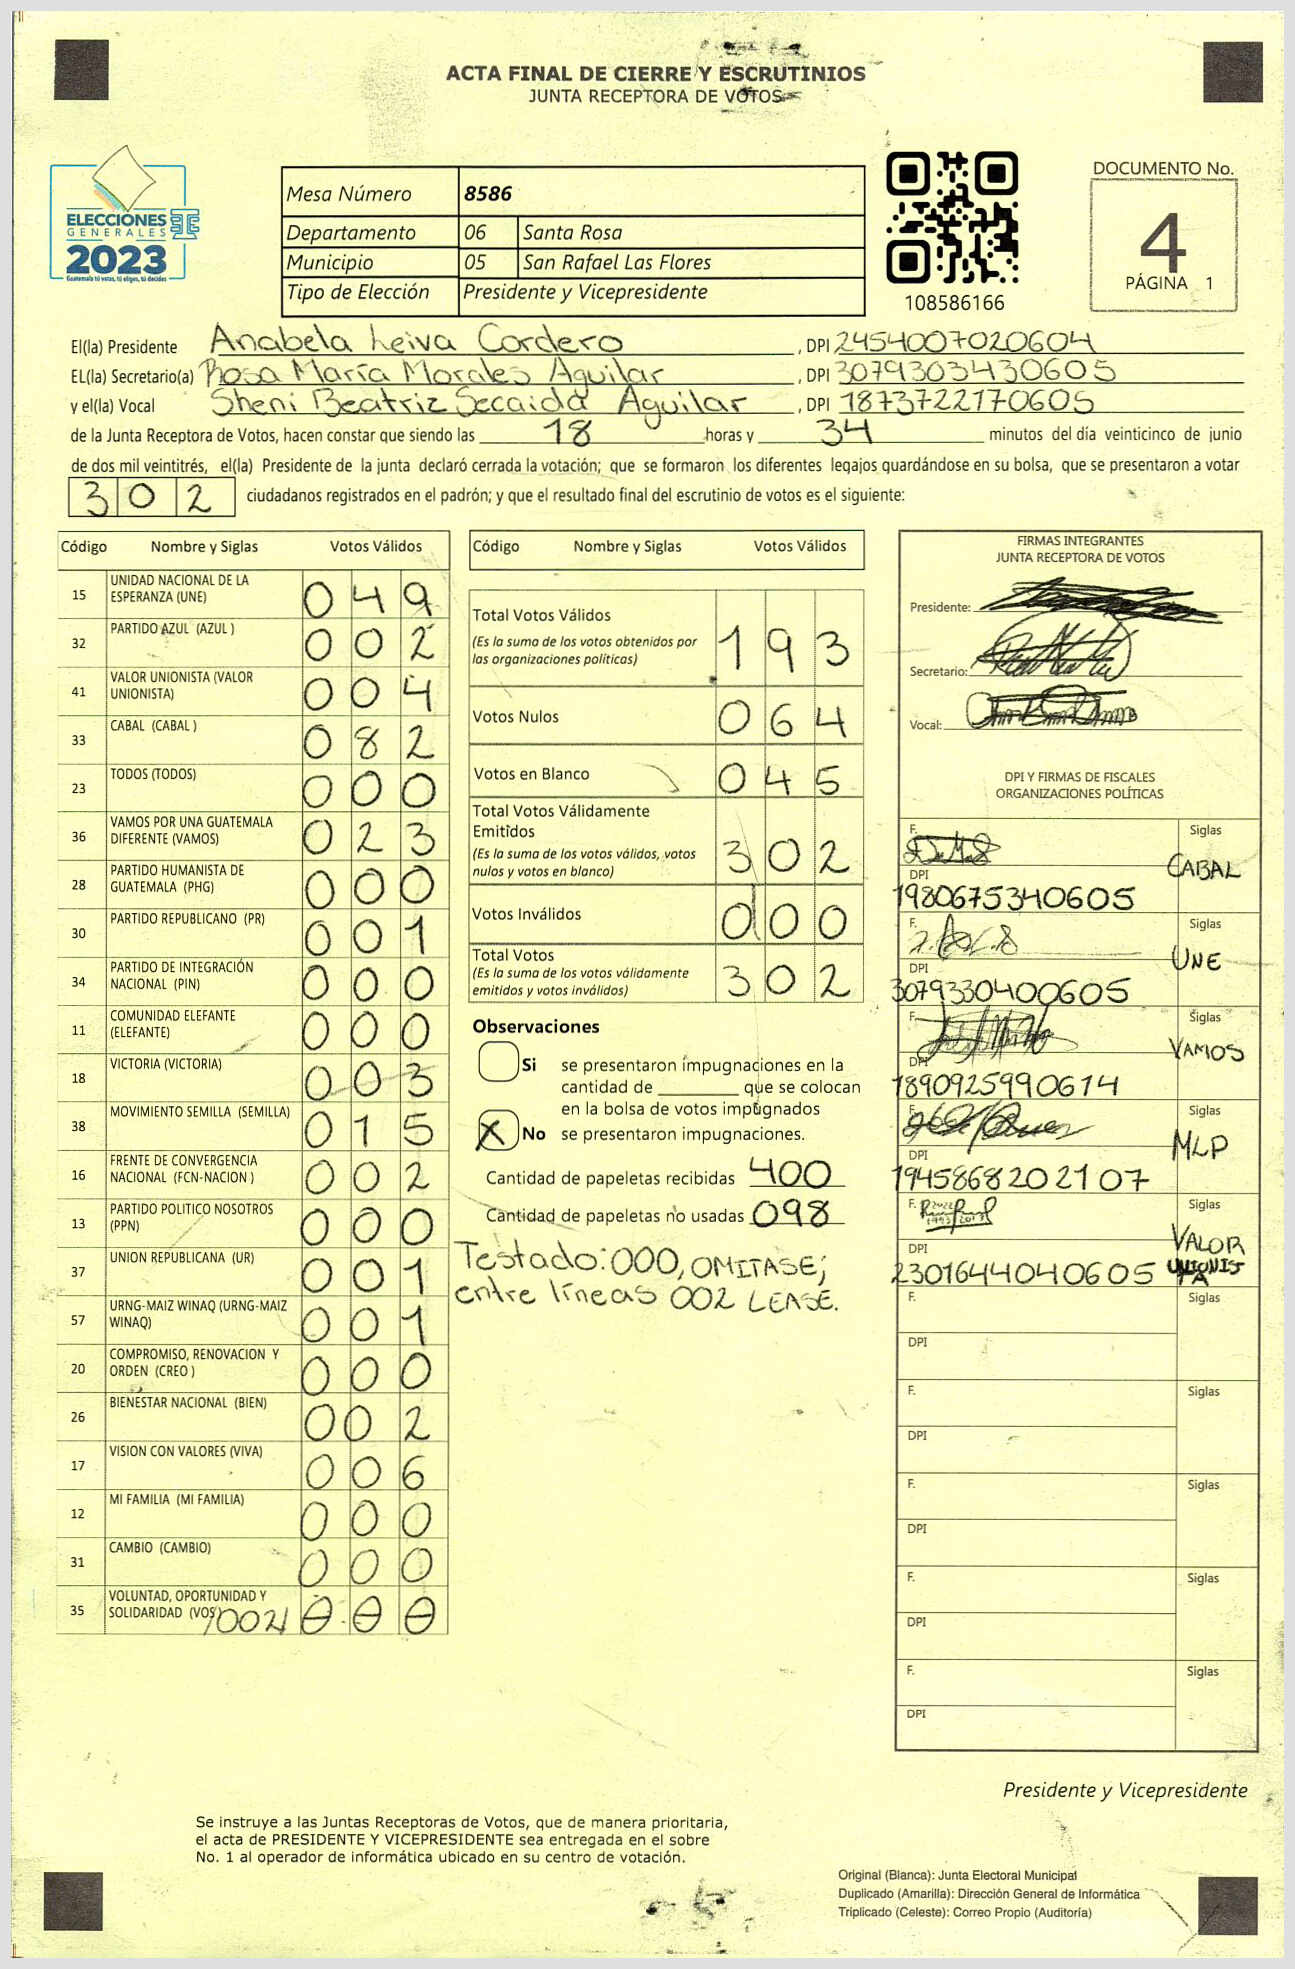 ACTA FINAL DE CIERRE Y ESCRUTINIOS
JUNTA RECEPTORA DE VOTOS
ELECCIONES
GENERALES
2023
Guatemala tú votas, tú eliges, tú decides
Mesa Número 8586
Departamento 06 Santa Rosa
Municipio 05 San Rafael Las Flores
Tipo de Elección Presidente y Vicepresidente
108586166
DOCUMENTO No.
4
PÁGINA 1
El(la) Presidente Anabela Leiva Cordero, DPI 2454007020604
EL(la) Secretario(a) Rosa María Morales Aguilar, DPI 3079303430605
y el(la) Vocal Sheni Beatriz Secaida Aguilar, DPI 1873722170605
de la Junta Receptora de Votos, hacen constar que siendo las 18 horas y 34 minutos del día veinticinco de junio
de dos mil veintitrés, el(la) Presidente de la junta declaró cerrada la votación; que se formaron los diferentes legajos guardándose en su bolsa, que se presentaron a votar
302 ciudadanos registrados en el padrón; y que el resultado final del escrutinio de votos es el siguiente:
Código Nombre y Siglas Votos Válidos
15 UNIDAD NACIONAL DE LA ESPERANZA (UNE) 049
32 PARTIDO AZUL (AZUL ) 002
41 VALOR UNIONISTA (VALOR UNIONISTA) 004
33 CABAL (CABAL ) 082
23 TODOS (TODOS) 000
36 VAMOS POR UNA GUATEMALA DIFERENTE (VAMOS) 023
28 PARTIDO HUMANISTA DE GUATEMALA (PHG) 000
30 PARTIDO REPUBLICANO (PR) 001
34 PARTIDO DE INTEGRACIÓN NACIONAL (PIN) 000
11 COMUNIDAD ELEFANTE (ELEFANTE) 000
18 VICTORIA (VICTORIA) 003
38 MOVIMIENTO SEMILLA (SEMILLA) 015
16 FRENTE DE CONVERGENCIA NACIONAL (FCN-NACION ) 002
13 PARTIDO POLITICO NOSOTROS (PPN) 000
37 UNION REPUBLICANA (UR) 001
57 URNG-MAIZ WINAQ (URNG-MAIZ WINAQ) 001
20 COMPROMISO, RENOVACION Y ORDEN (CREO ) 000
26 BIENESTAR NACIONAL (BIEN) 002
17 VISION CON VALORES (VIVA) 006
12 MI FAMILIA (MI FAMILIA) 000
31 CAMBIO (CAMBIO) 000
35 VOLUNTAD, OPORTUNIDAD Y SOLIDARIDAD (VOS) /002/ 000
Código Nombre y Siglas Votos Válidos
Total Votos Válidos 193
(Es la suma de los votos obtenidos por
las organizaciones políticas)
Votos Nulos 064
Votos en Blanco 045
Total Votos Válidamente
Emitidos 302
(Es la suma de los votos válidos, votos
nulos y votos en blanco)
Votos Inválidos 000
Total Votos 302
(Es la suma de los votos válidamente
emitidos y votos inválidos)
Observaciones
Si se presentaron impugnaciones en la
cantidad de ________ que se colocan
en la bolsa de votos impugnados
X No se presentaron impugnaciones.
Cantidad de papeletas recibidas 400
Cantidad de papeletas no usadas 098
Testado: 000, OMITASE;
entre líneas 002 LEASE.
FIRMAS INTEGRANTES
JUNTA RECEPTORA DE VOTOS
Presidente:
Secretario:
Vocal:
DPI Y FIRMAS DE FISCALES
ORGANIZACIONES POLÍTICAS
F. Siglas
CABAL
DPI
1980675340605
F. Siglas
UNE
DPI
3079330400605
F. Siglas
VAMOS
DPI
1890925990614
F. Siglas
MLP
DPI
1945868202107
F. Siglas
VALOR
UNIONISTA
DPI
2301644040605
F. Siglas
DPI
F. Siglas
DPI
F. Siglas
DPI
F. Siglas
DPI
F. Siglas
DPI
Presidente y Vicepresidente
Se instruye a las Juntas Receptoras de Votos, que de manera prioritaria,
el acta de PRESIDENTE Y VICEPRESIDENTE sea entregada en el sobre
No. 1 al operador de informática ubicado en su centro de votación.
Original (Blanca): Junta Electoral Municipal
Duplicado (Amarilla): Dirección General de Informática
Triplicado (Celeste): Correo Propio (Auditoría)